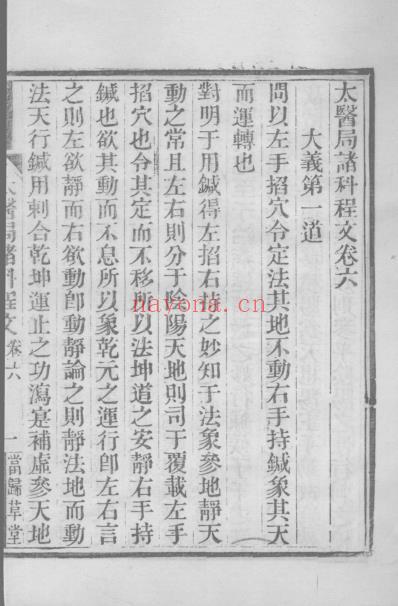 太醫局諸科程文卷六
大義第一道
問以左手掐穴令定法其地不動右手持鍼象其天
而運轉也
對明于用鍼得左掐右持之妙知于法象參地靜天
動之常且左右則分于陰陽天地則司于覆載左手
掐穴也令其定而不移所以法坤道之安靜右手持
鍼也欲其動而不息所以象乾元之運行卽左右言
之則左欲靜而右欲動卽動靜論之則靜法地而動
法天行鍼用刺合乾坤運止之功瀉寔補虛參天地
太醫局諸科程文 卷六 一 當歸草堂
nayona.cn